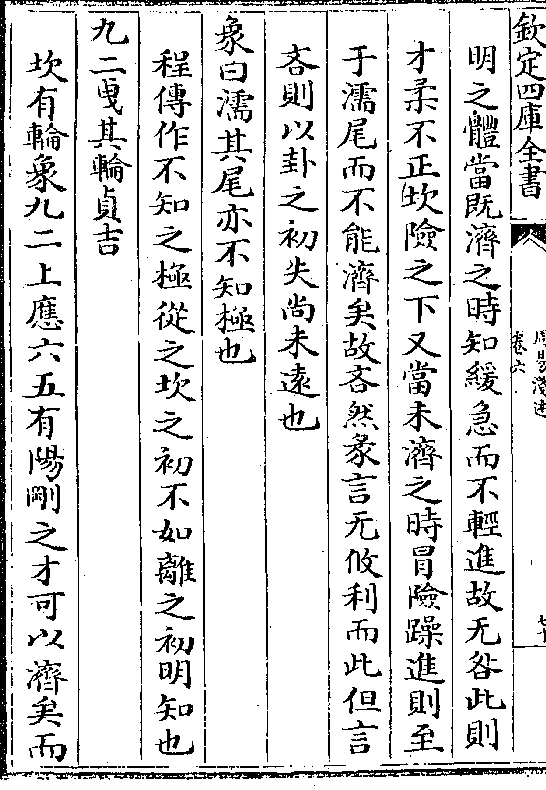 欽定四庫全書
周易淺述
卷六
明之體當既濟之時知緩急而不輕進故无咎此則
才柔不正坎險之下又當未濟之時冒險躁進則至
于濡尾而不能濟矣故吝然彖言无攸利而此但言
吝則以卦之初失尚未遠也
象曰濡其尾亦不知極也
程傳作不知之極從之坎之初不如離之初明知也
九二曳其輪貞吉
坎有輪象九二上應六五有陽剛之才可以濟矣而